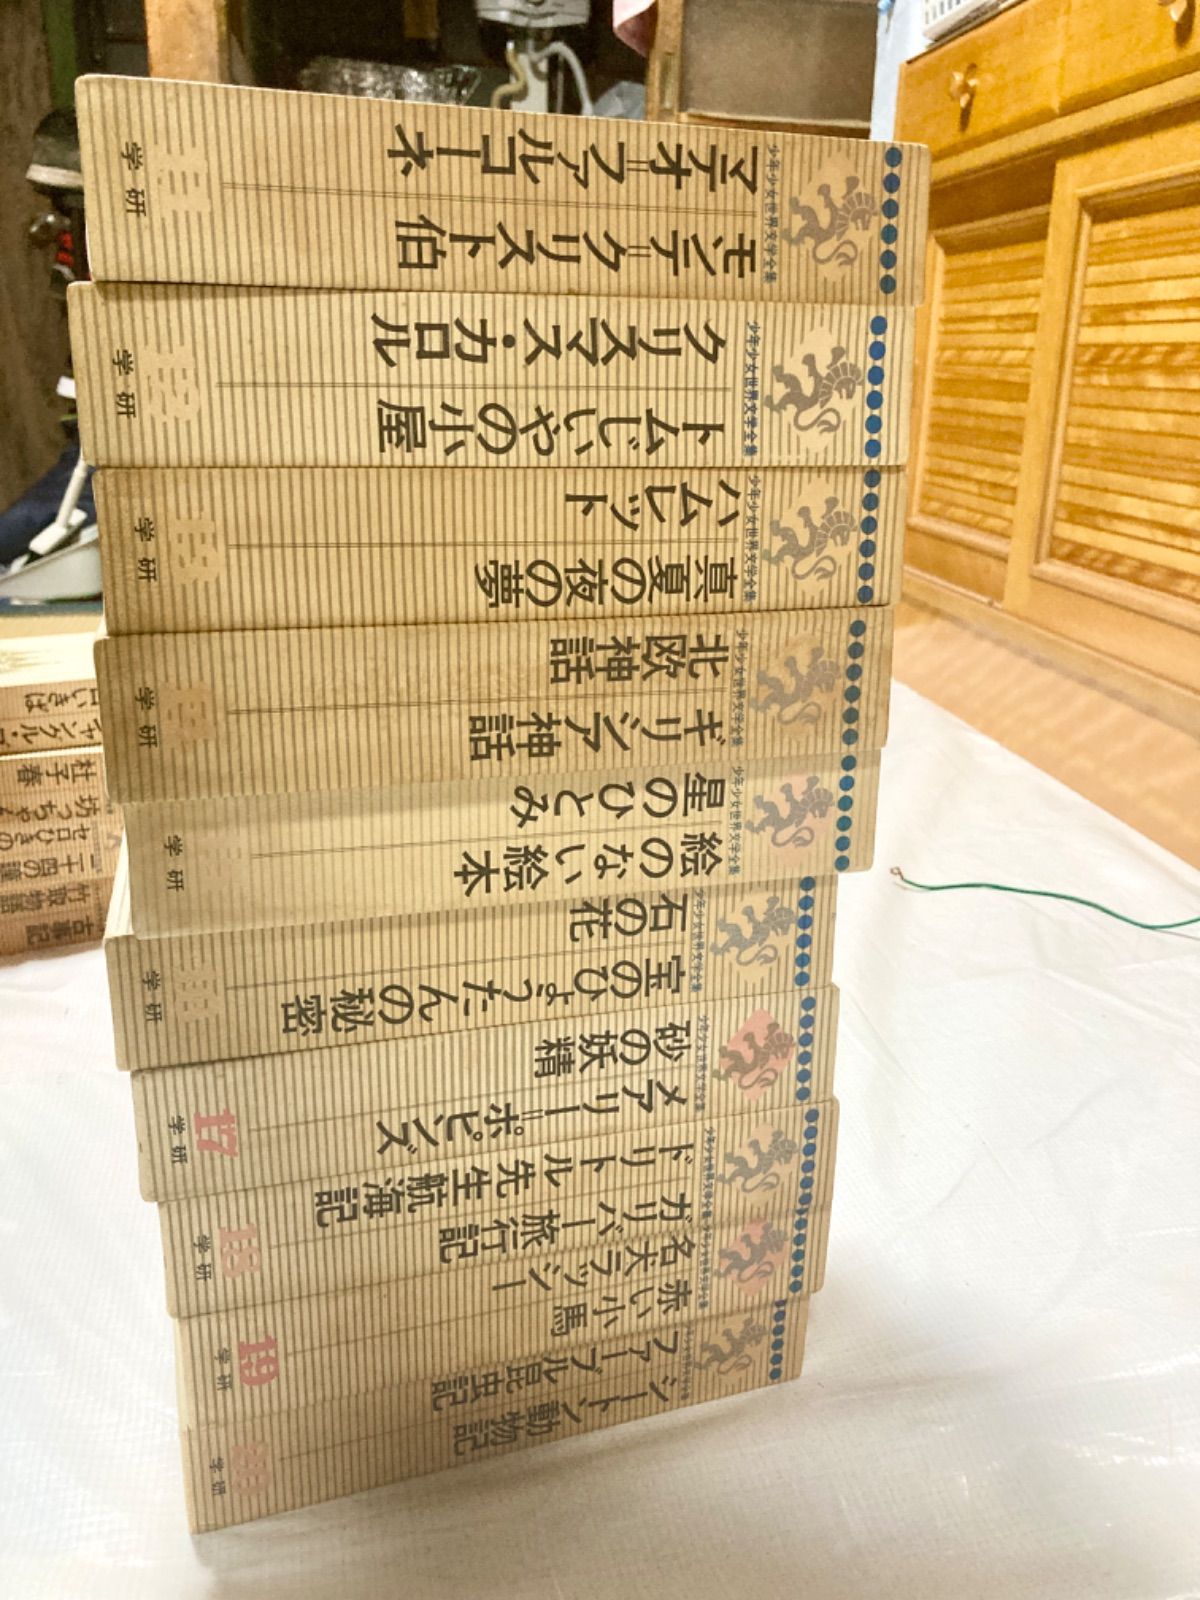 少年少女世界文学全集
マテオ=ファルコーネ
モンテ=クリスト伯
学研
少年少女世界文学全集
クリスマス・カロル
トムじいやの小屋
学研
少年少女世界文学全集
ハムレット
真夏の夜の夢
学研
少年少女世界文学全集
北欧神話
ギリシア神話
学研
少年少女世界文学全集
星のひとみ
絵のない絵本
学研
少年少女世界文学全集
石の花
宝のひょうたんの秘密
学研
少年少女世界文学全集
砂の妖精
メアリー=ポピンズ
17
学研
少年少女世界文学全集
ドリトル先生航海記
ガリバー旅行記
18
学研
少年少女世界文学全集
名犬ラッシー
赤い小馬
19
学研
ファーブル昆虫記
シートン動物記
学研
白いきば
杜子春
坊っちゃん
セロひきの
二十四の瞳
竹取物語
古事記